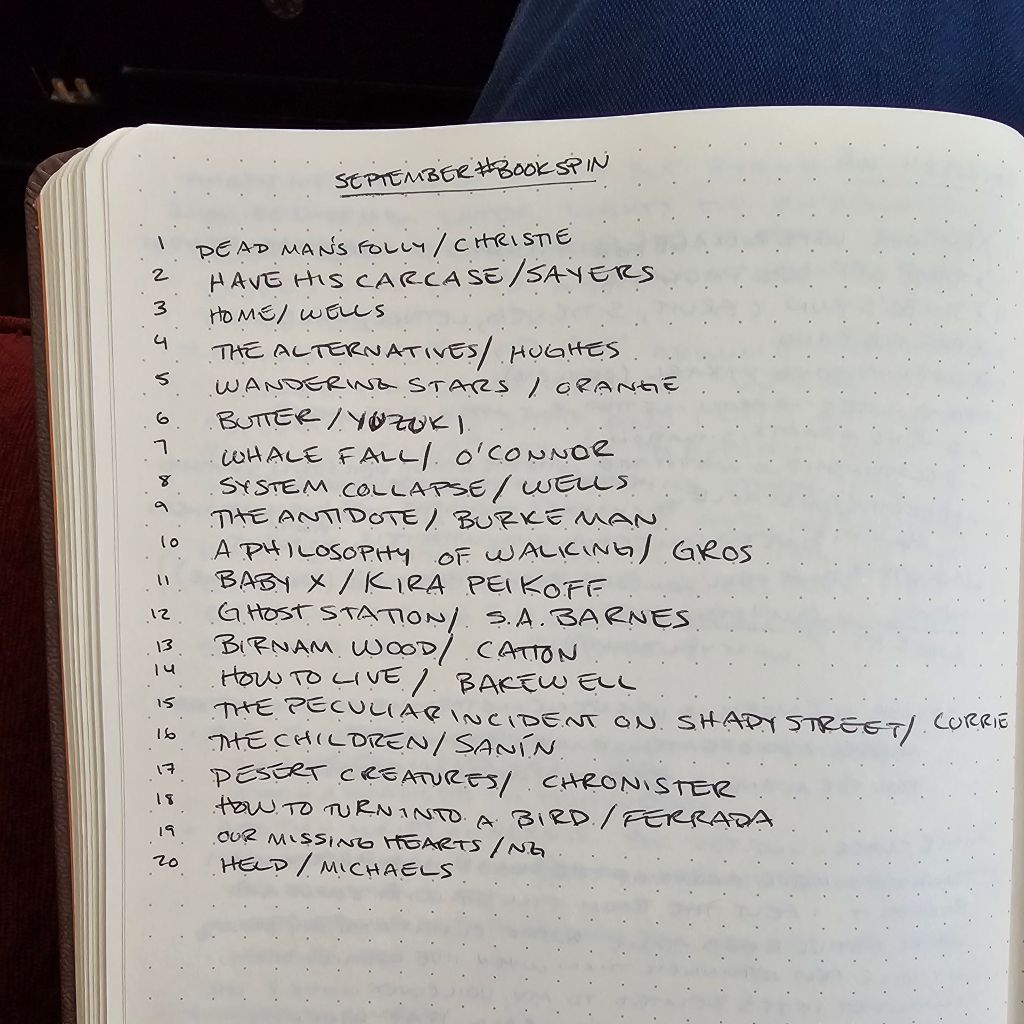 SEPTEMBER #BOOKSPIN
1 DEAD MAN'S FOLLY / CHRISTIE
2 HAVE HIS CARCASE / SAYERS
3 HOME / WELLS
4 THE ALTERNATIVES / HUGHES
5 WANDERING STARS / ORANGE
6 BUTTER / YUZUKI
7 WHALE FALL / O'CONNOR
8 SYSTEM COLLAPSE / WELLS
9 THE ANTIDOTE / BURKEMAN
10 A PHILOSOPHY OF WALKING / GROS
11 BABY X / KIRA PEIKOFF
12 GHOST STATION / S.A. BARNES
13 BIRNAM WOOD / CATTON
14 HOW TO LIVE / BAKEWELL
15 THE PECULIAR INCIDENT ON SHADY STREET / CURRIE
16 THE CHILDREN / SANÍN
17 DESERT CREATURES / CHRONISTER
18 HOW TO TURN INTO A BIRD / FERRADA
19 OUR MISSING HEARTS / NG
20 HELD / MICHAELS